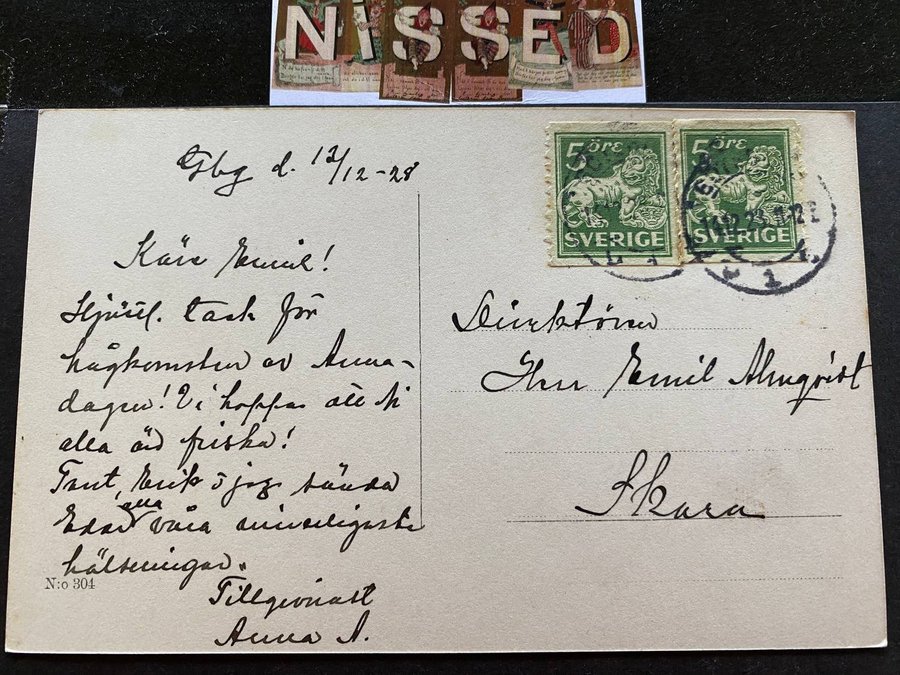 NISSED
Gbg d. 12/12-28
5 ÖRE SVERIGE
5 ÖRE SVERIGE
Käre Emil!
Hjärtl. tack för
hågkomsten av Anna-
dagen! Vi hoppas att Ni
alla äro friska!
Tant, Erik o jag sända
Eder alla våra innerligaste
hälsningar.
Tillgivnast
Anna A.
N:o 304
Direktören
Herr Emil Almqvist
Skara